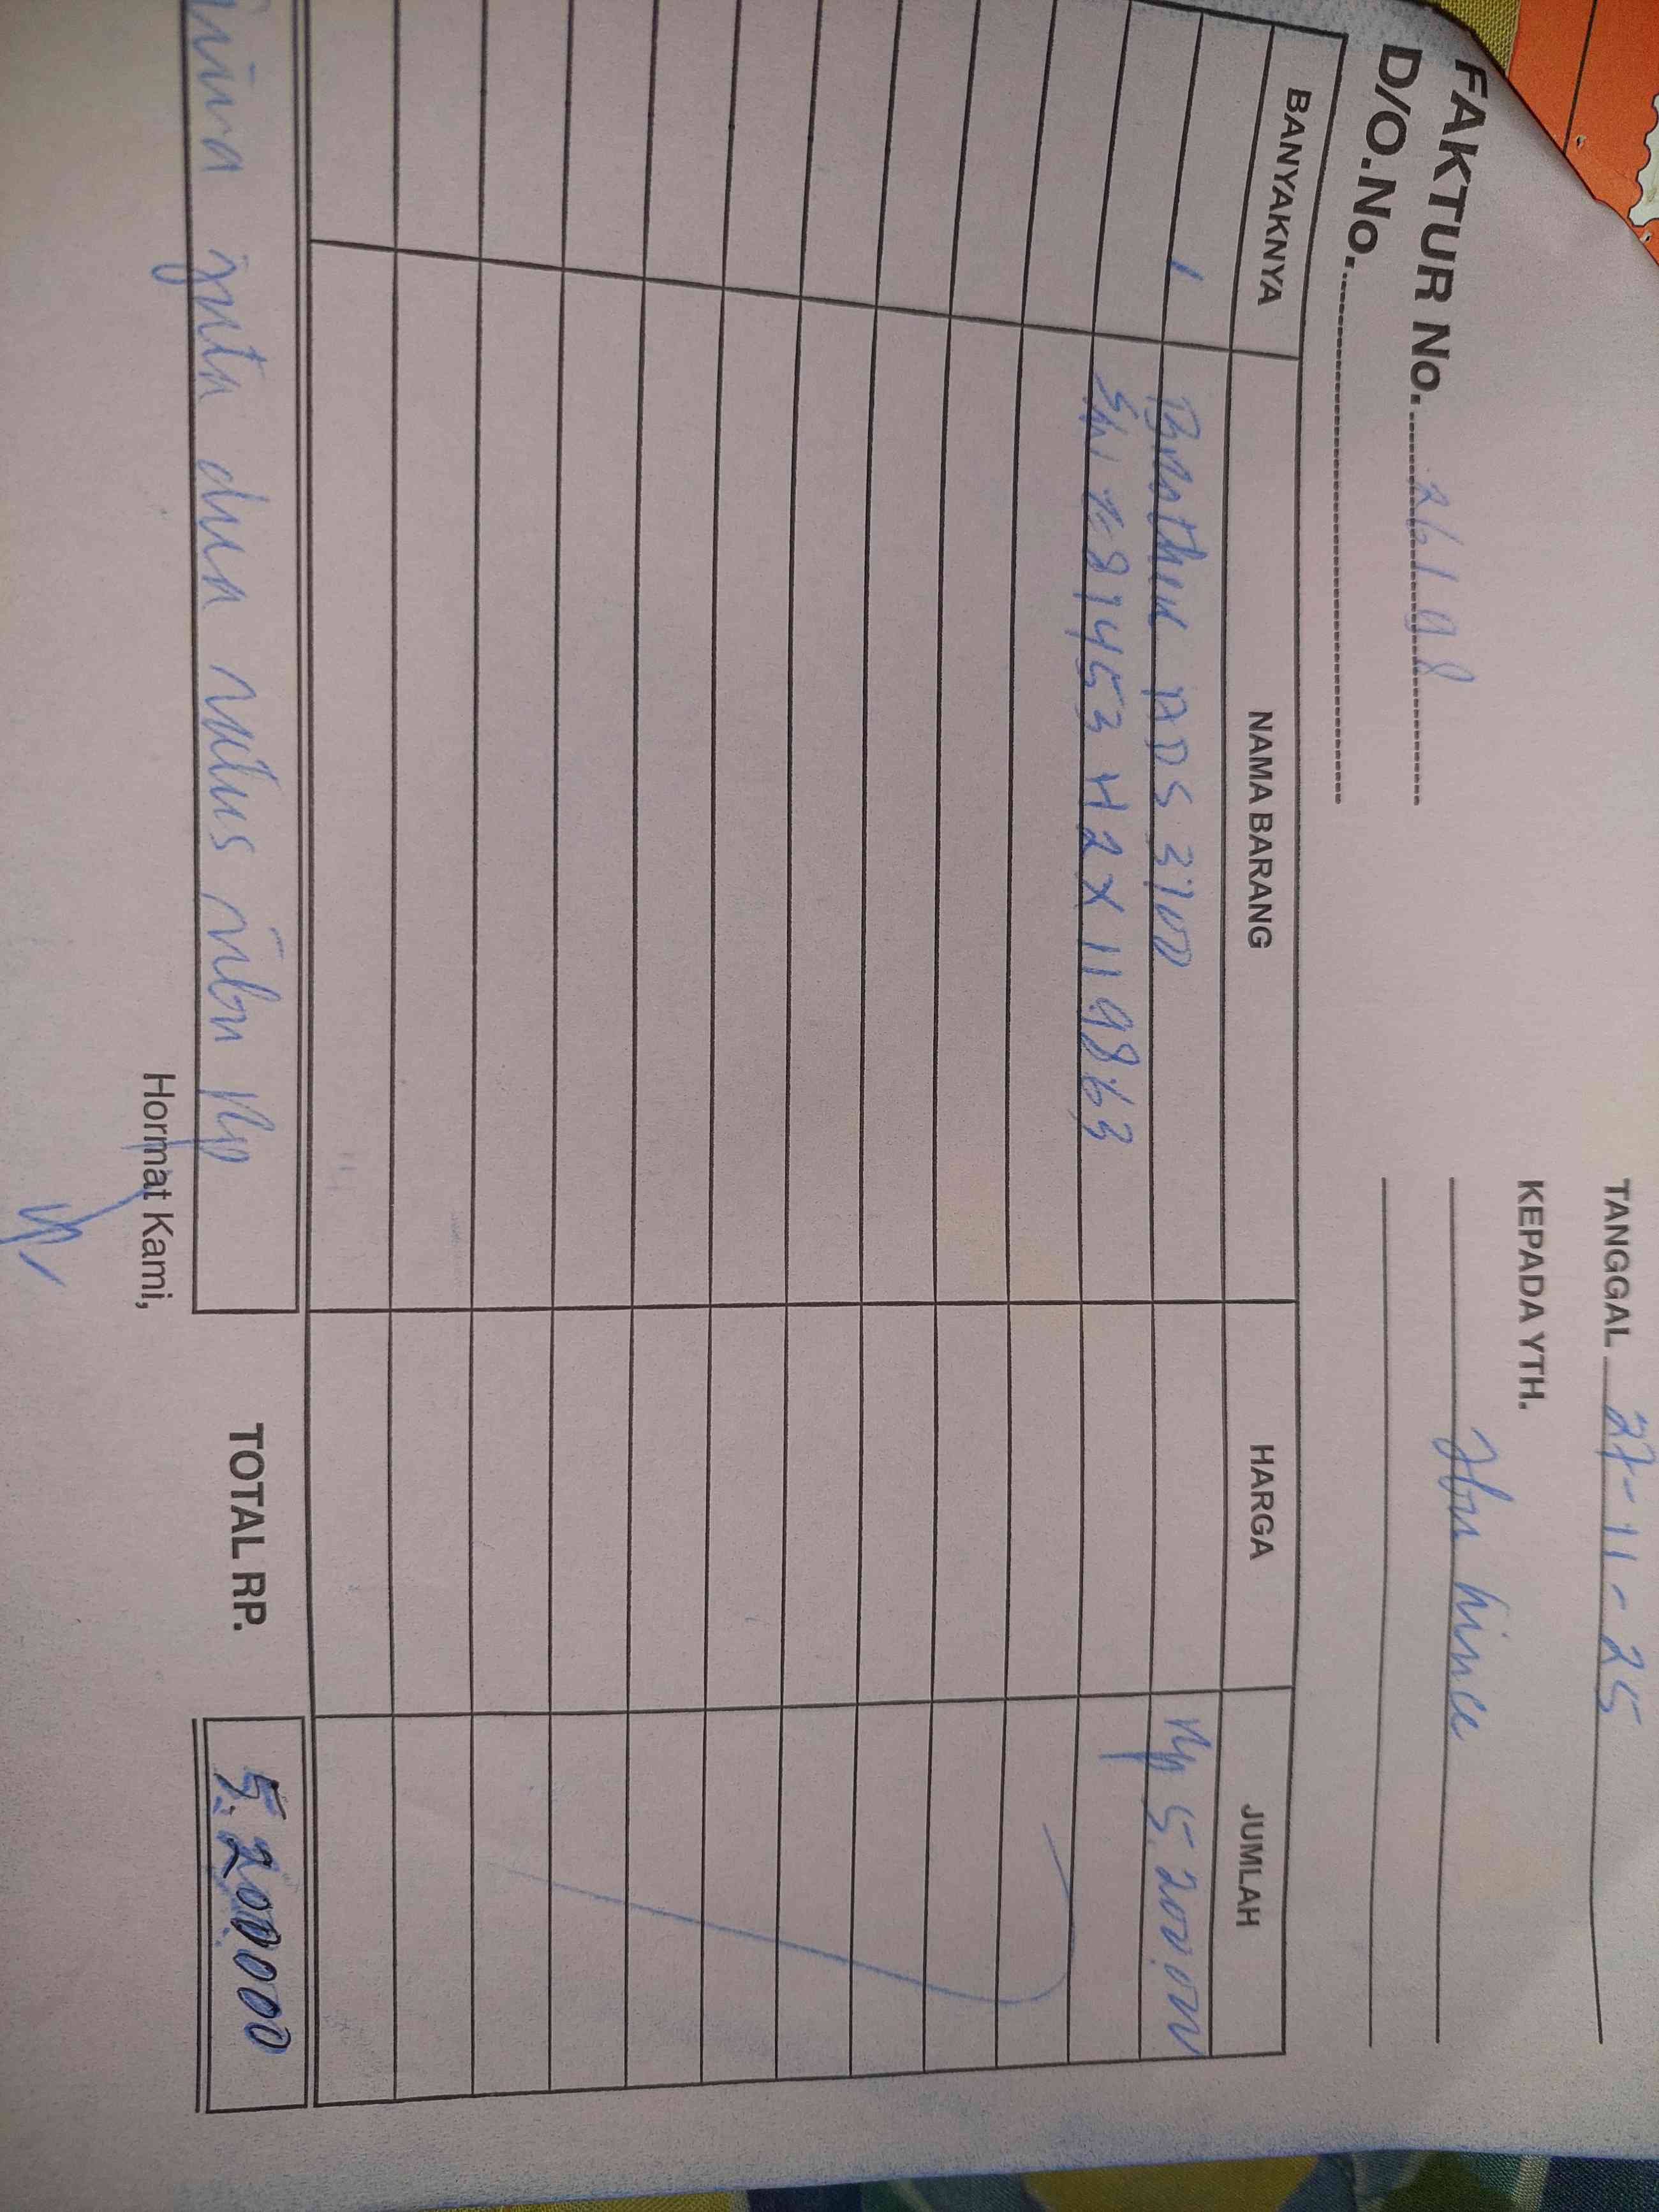 TANGGAL 27-11-25
KEPADA YTH.
Ibu hince
FAKTUR No. 26198
D/O.No.
BANYAKNYA NAMA BARANG HARGA JUMLAH
1 Brother ADS 3700 Rp 5.200.000
H2X119863
juta dua ratus ribu Rp TOTAL RP. 5.200000
Hormat Kami,